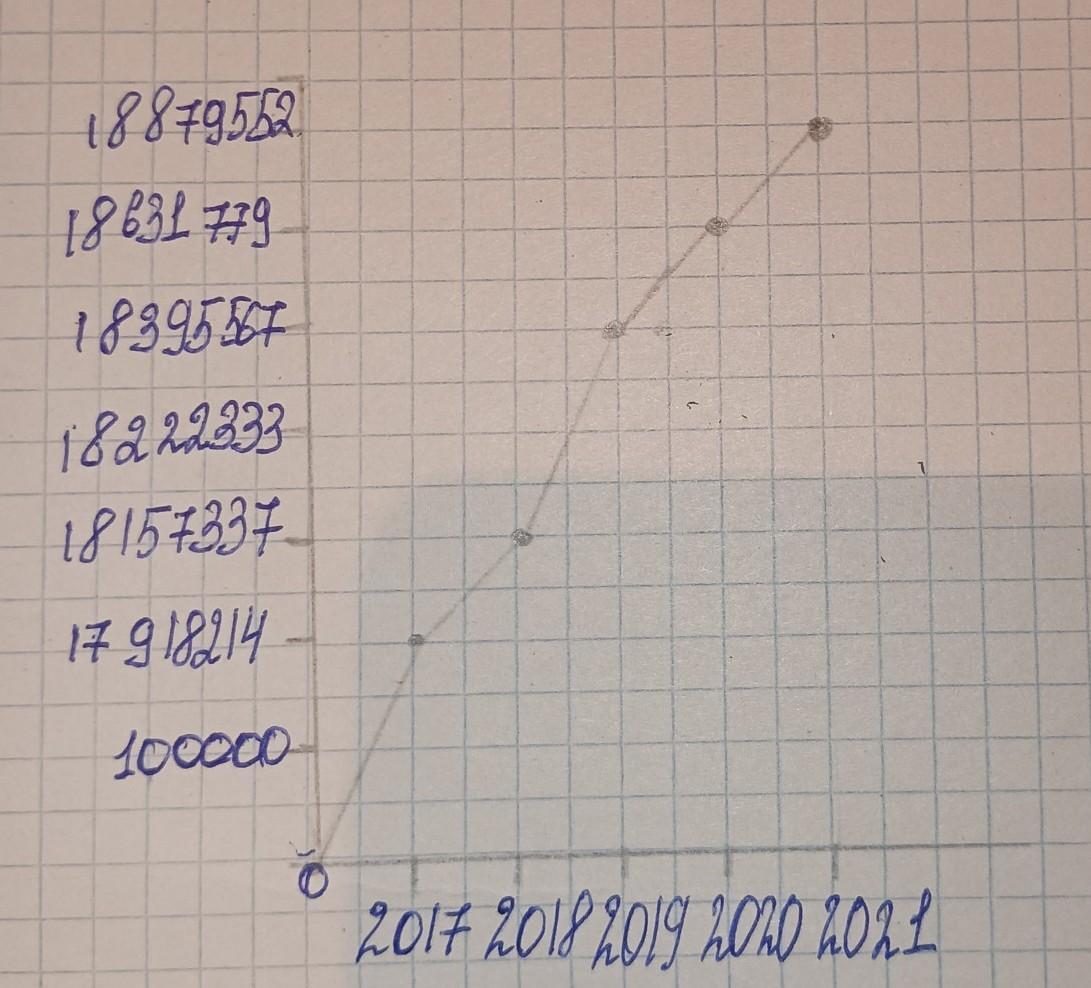 18879552
18631779
18395567
18222333
18157337
17918214
100000
0
2017 2018 2019 2020 2021